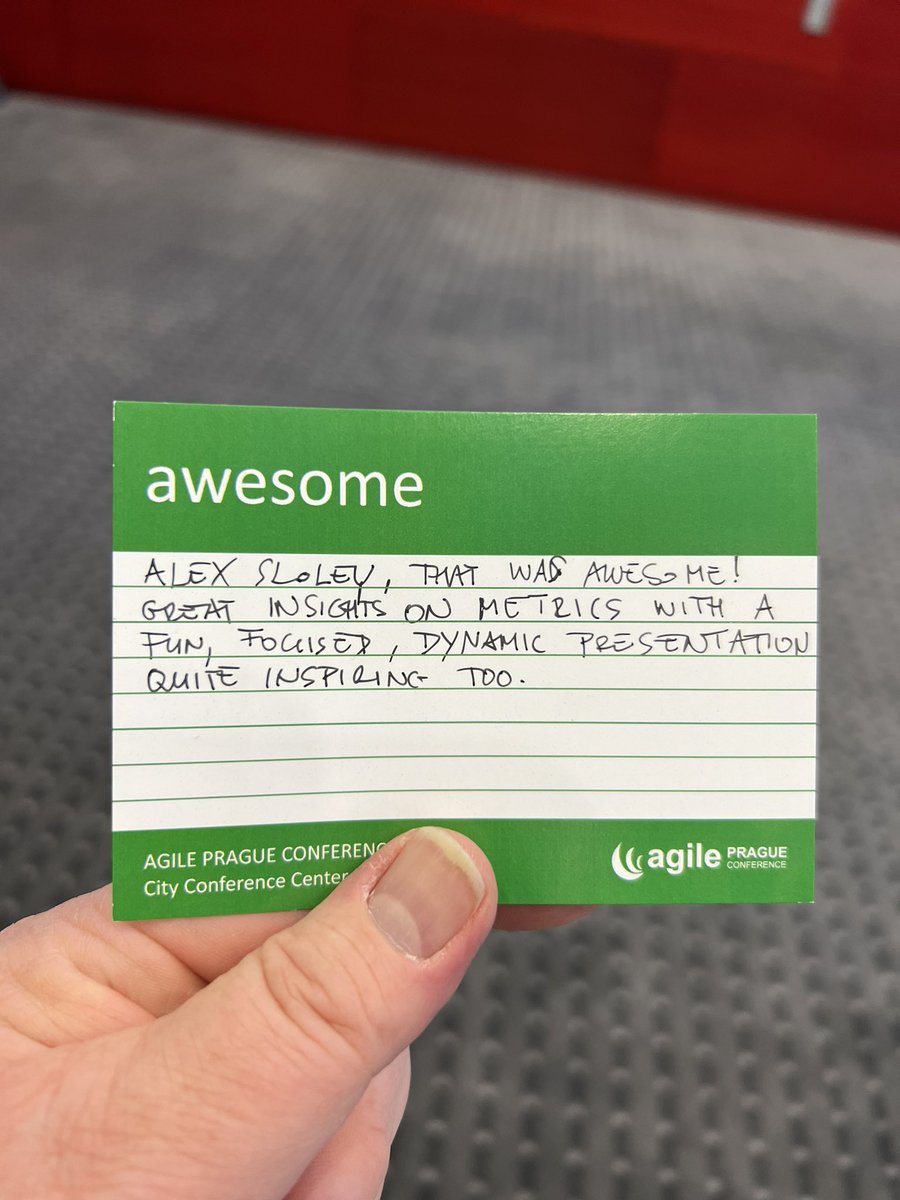 awesome
ALEX SLOLEY, THAT WAS AWESOME!
GREAT INSIGHTS ON METRICS WITH A
FUN, FOCUSED, DYNAMIC PRESENTATION
QUITE INSPIRING TOO.
AGILE PRAGUE CONFERENC
City Conference Center
agile PRAGUE
CONFERENCE